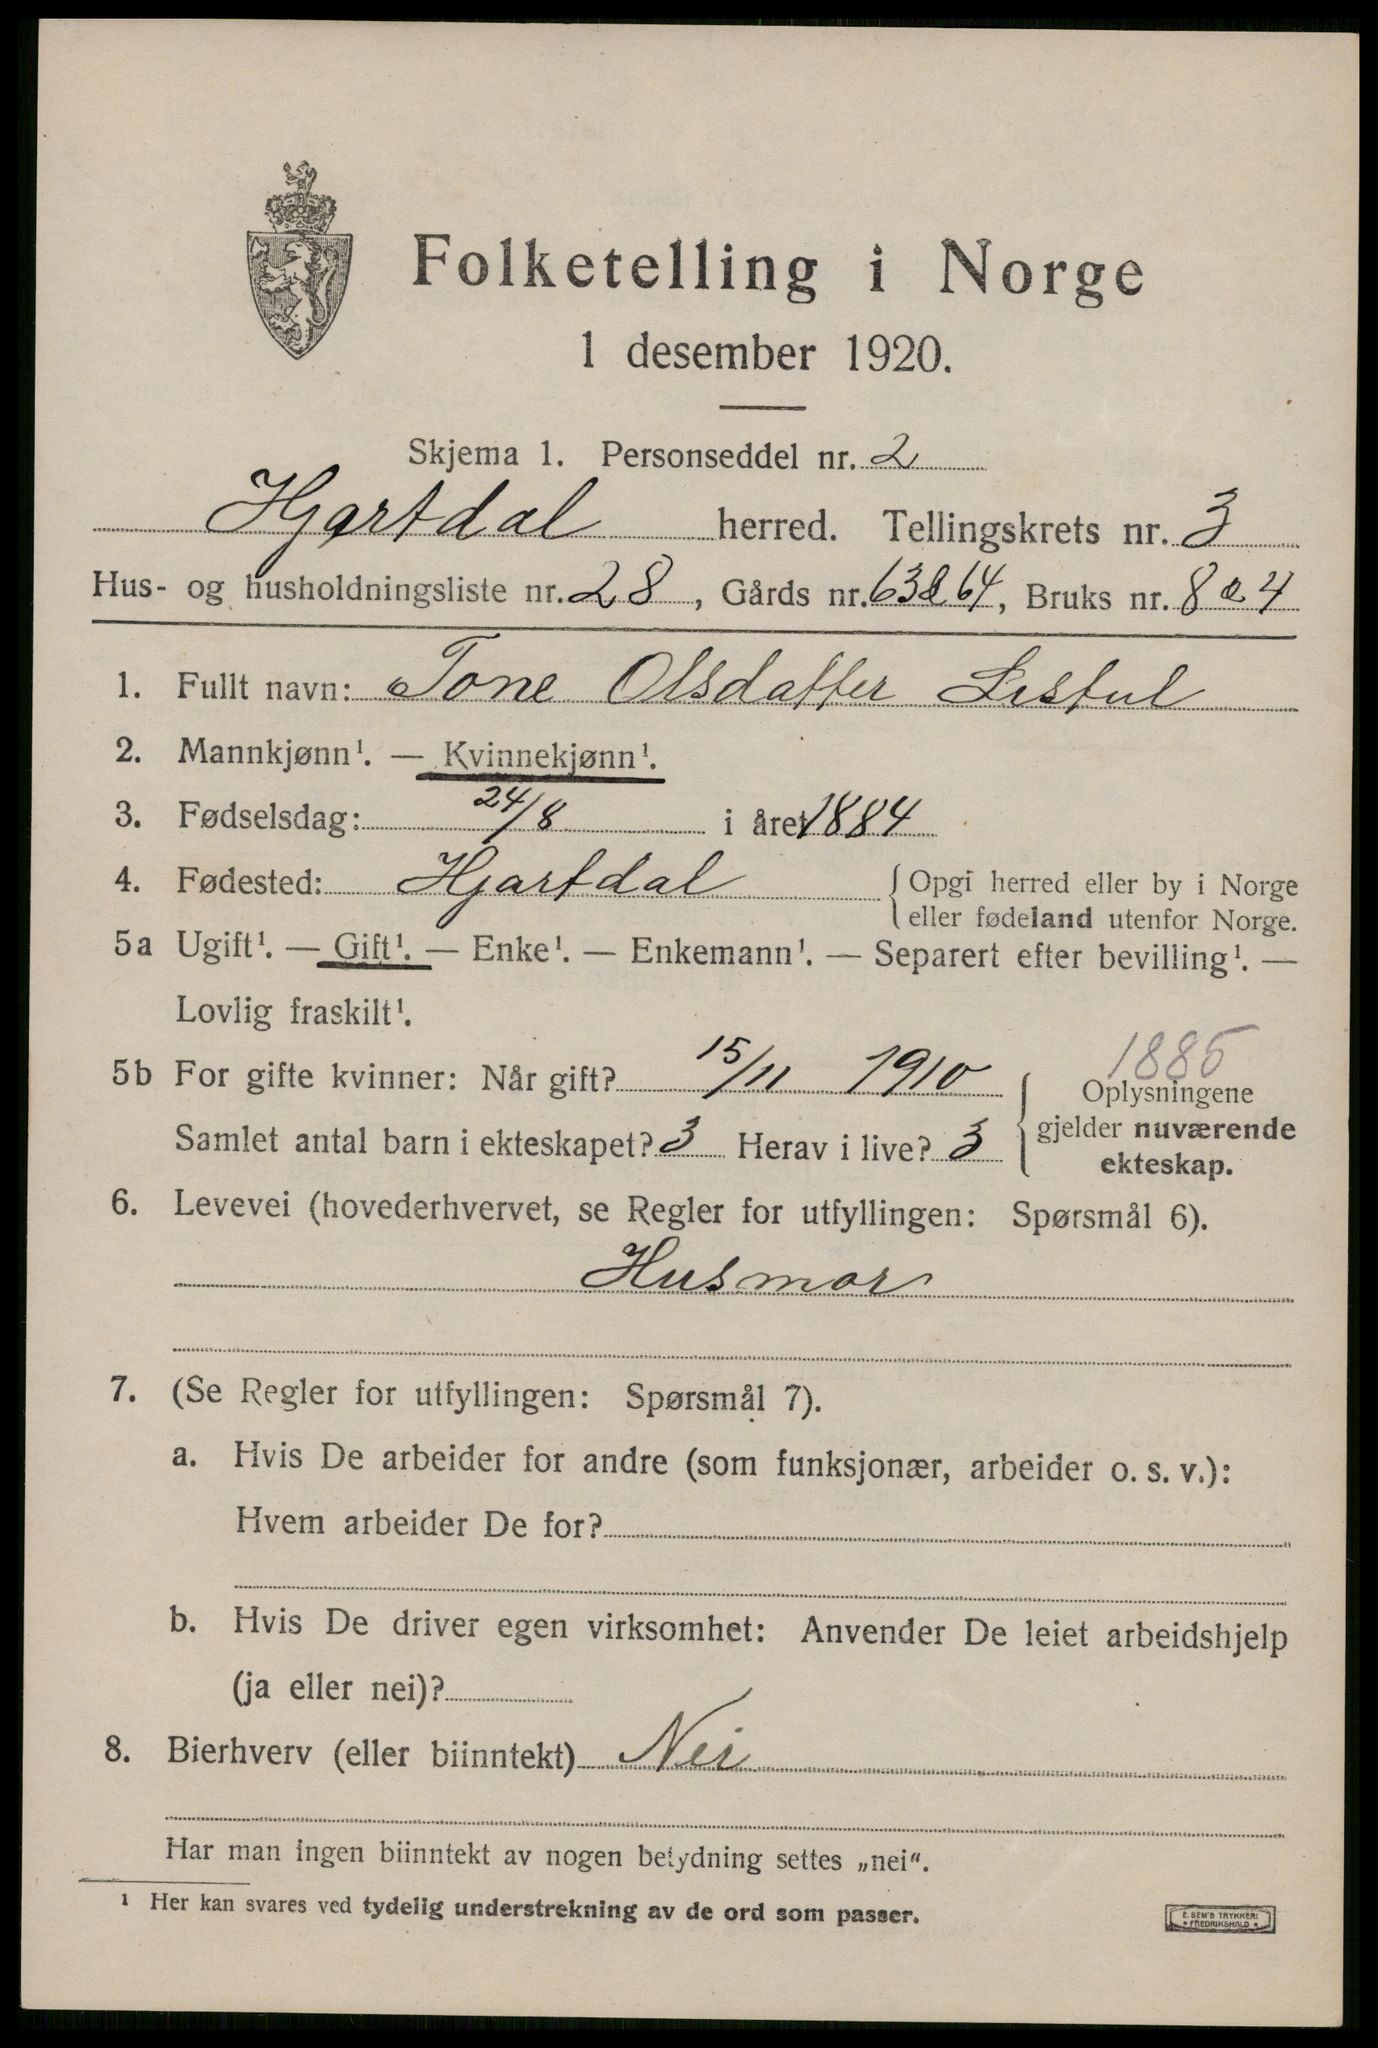 Folketelling i Norge
1 desember 1920.
Skjema 1. Personseddel nr. 2
Hjartdal herred. Tellingskrets nr. 3
Hus- og husholdningsliste nr. 28, Gårds nr. 63 & 64, Bruks nr. 8 & 4
1. Fullt navn: Tone Olsdatter Listul
2. Mannkjønn¹. — Kvinnekjønn¹.
3. Fødselsdag: 24/8 i året 1884
4. Fødested: Hjartdal { Opgi herred eller by i Norge
eller fødeland utenfor Norge.
5a Ugift¹. — Gift¹. — Enke¹. — Enkemann¹. — Separert efter bevilling¹. —
Lovlig fraskilt¹.
1885
5b For gifte kvinner: Når gift? 15/11 1910 { Oplysningene
gjelder nuværende
Samlet antal barn i ekteskapet? 3 Herav i live? 3
ekteskap.
6. Levevei (hovederhvervet, se Regler for utfyllingen: Spørsmål 6).
Husmor
7. (Se Regler for utfyllingen: Spørsmål 7).
a. Hvis De arbeider for andre (som funksjonær, arbeider o. s. v.):
Hvem arbeider De for?
b. Hvis De driver egen virksomhet: Anvender De leiet arbeidshjelp
(ja eller nei)?
8. Bierhverv (eller biinntekt) Nei
Har man ingen biinntekt av nogen betydning settes „nei“.
¹ Her kan svares ved tydelig understrekning av de ord som passer.
E. SEM'S TRYKKERI
* FREDRIKSHALD *